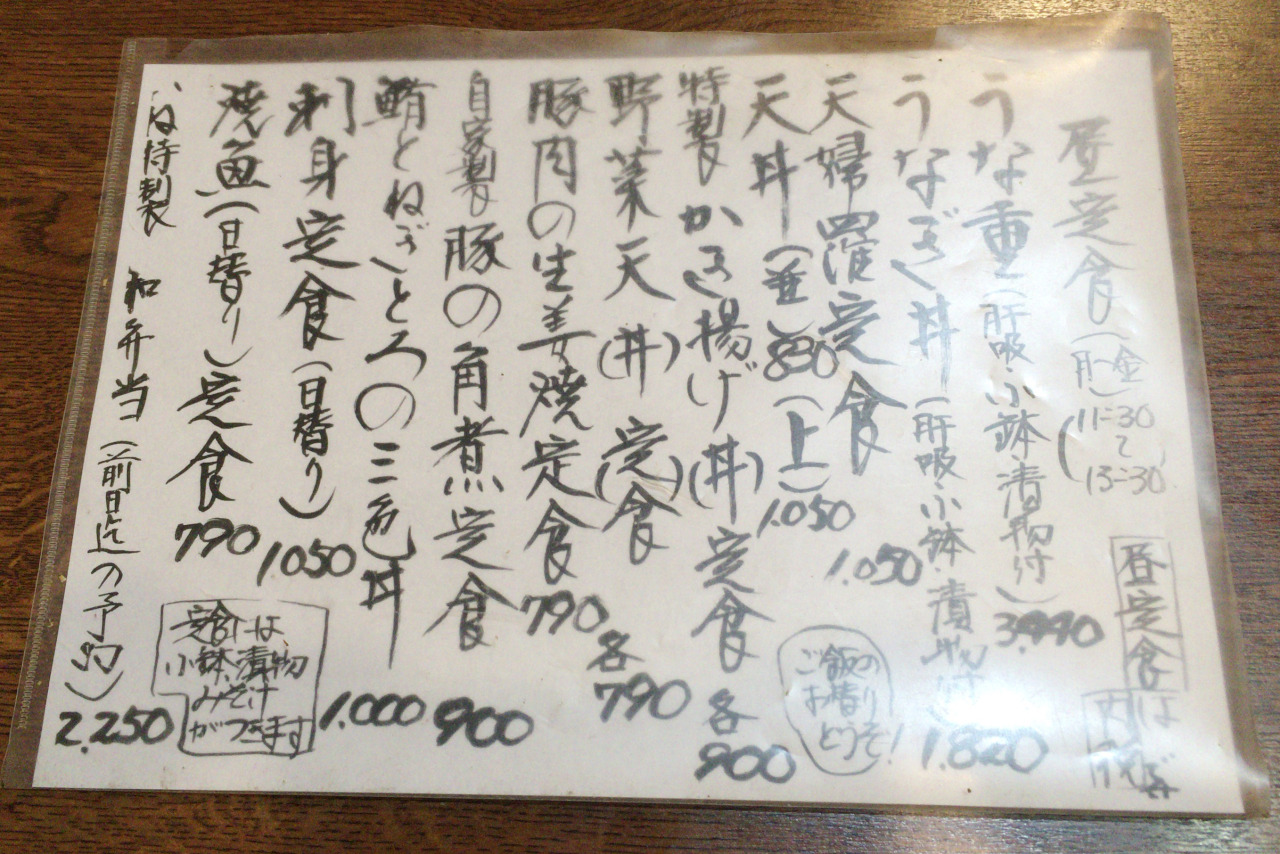 昼定食(月〜金)
(11:30〜13:30)
昼定食
は
うな重(肝吸・小鉢漬物付)3440
うなぎ丼(肝吸小鉢漬物付)1.820
天婦羅定食 1.050
天丼(並)830(上)1.050
ご飯の
お替り
どうぞ!
特製かき揚げ丼(丼)定食 各900
野菜天(丼)(定食) 各790
豚肉の生姜焼定食 790
自家製豚の角煮定食 900
鯖とねぎとろの三色丼 1.000
刺身定食(日替り) 1050
焼魚(日替り)定食 790
定食は
小鉢漬物
みそ汁
がつきます
特製 和弁当(前日迄の予約)2.250